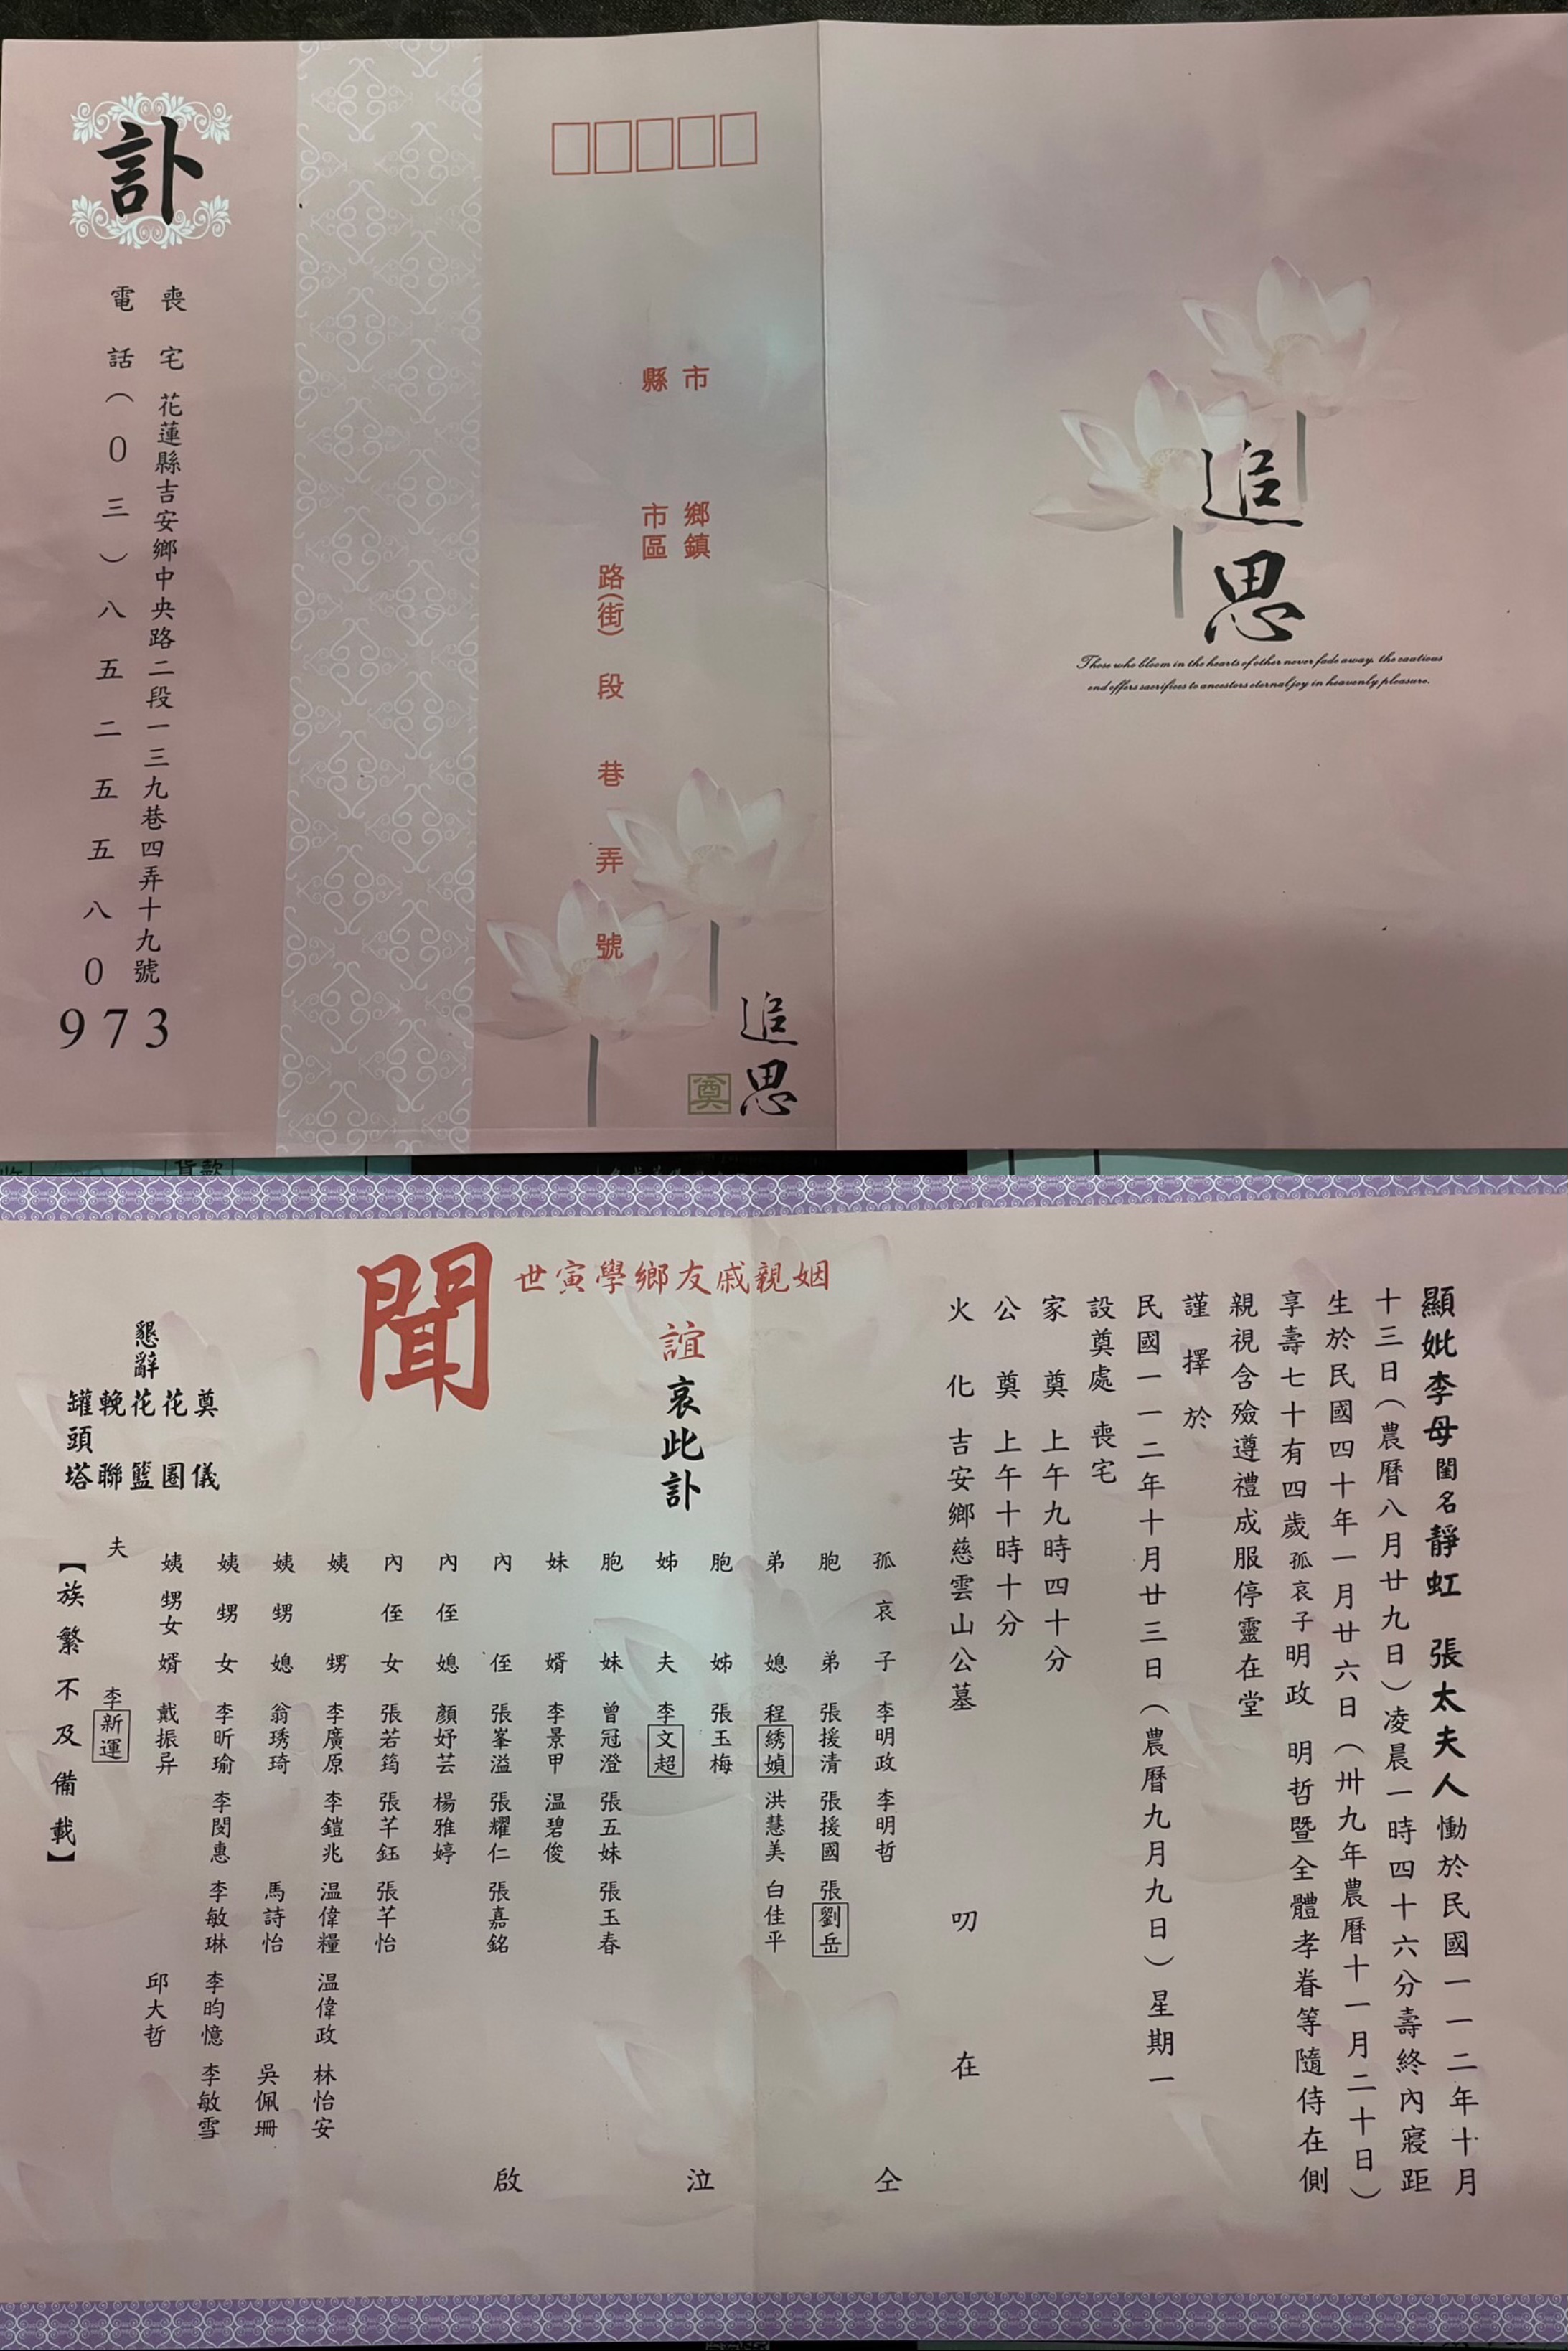 追思
Those who bloom in the hearts of other never fade away, the cautious
end offers sacrifices to ancestors eternal joy in heavenly pleasure.
市
縣
鄉鎮
市區
路(街) 段 巷 弄 號
追思
奠
訃
喪宅 花蓮縣吉安鄉中央路二段一三九巷四弄十九號
電話(0三)八五二五五八0
973
顯妣李母閨名靜虹 張太夫人慟於民國一一二年十月
十三日(農曆八月廿九日)凌晨一時四十六分壽終內寢距
生於民國四十年一月廿六日(卅九年農曆十一月二十日)
享壽七十有四歲孤哀子明政 明哲暨全體孝眷等隨侍在側
親視含殮遵禮成服停靈在堂
謹擇於
民國一一二年十月廿三日(農曆九月九日)星期一
設奠處 喪宅
家奠 上午九時四十分
公奠 上午十時十分
火化 吉安鄉慈雲山公墓
叨在
姻親戚友鄉學寅世
誼哀此訃
聞
懇辭
奠儀
花圈
花籃
輓聯
罐頭塔
孤哀子 李明政 李明哲
胞弟 張援清 張援國 張劉岳
弟媳 程綉媜 洪慧美 白佳平
胞姊 張玉梅
姊夫 李文超
胞妹 曾冠澄 張五妹 張玉春
妹婿 李景甲 温碧俊
內侄 張峯溢 張耀仁 張嘉銘
內侄媳 顏妤芸 楊雅婷
內侄女 張若筠 張芊鈺 張芊怡
姨甥 李廣原 李鎧兆 温偉糧 温偉政 林怡安
姨甥媳 翁琇琦 馬詩怡 吳佩珊
姨甥女 李昕瑜 李閔惠 李敏琳 李昀憶 李敏雪
姨甥女婿 戴振异 邱大哲
夫 李新運
仝泣啟
【族繁不及備載】